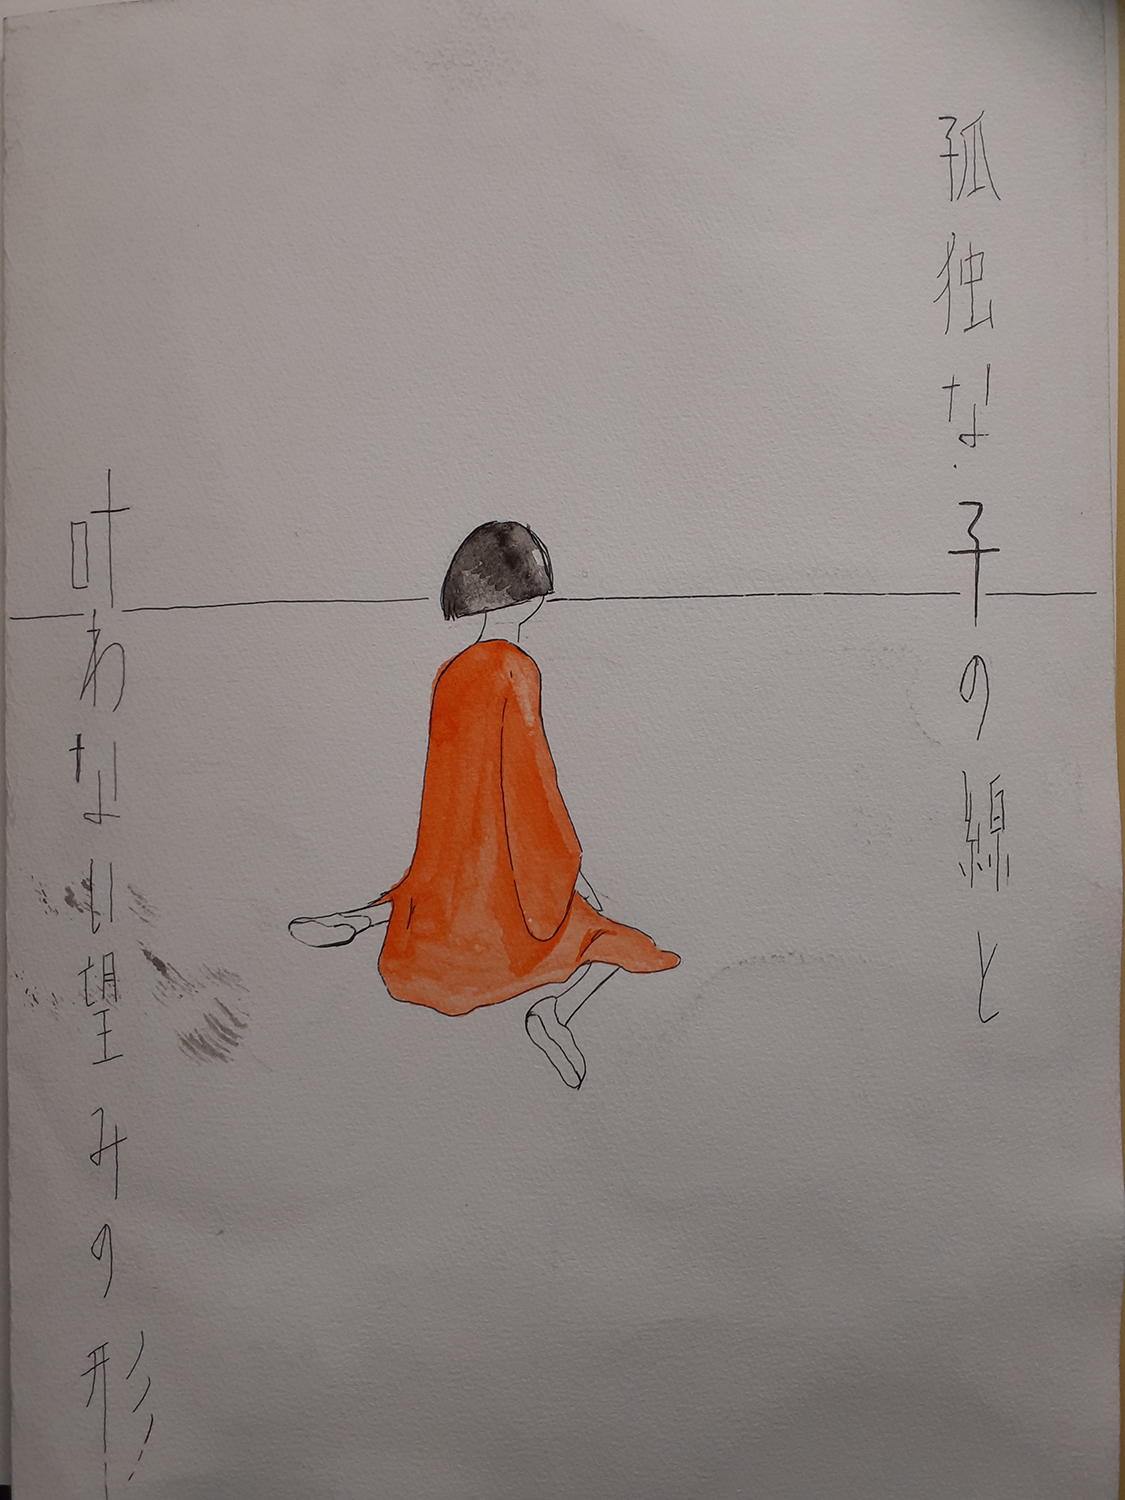 孤独な子の線と
叶わない望みの形